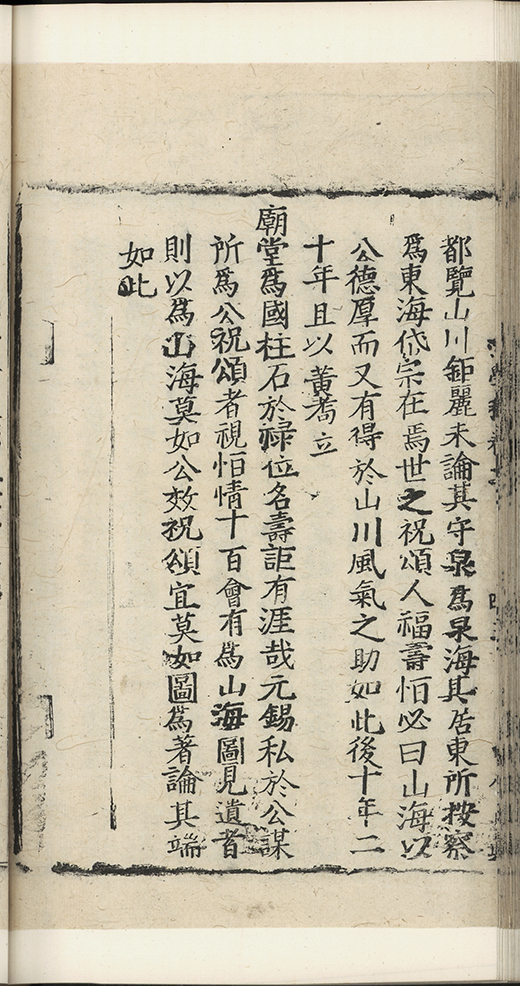 都覽山川鉅麗未論其守泉為泉海其居東所按察
為東海岱宗在焉世之祝頌人福壽恒必曰山海以
公德厚而又有得於山川風氣之助如此後十年二
十年且以黃耈立
廟堂為國柱石於祿位名壽詎有涯哉元錫私於公謀
所為公祝頌者視恒情十百會有為山海圖見遺者
則以為山海莫如公效祝頌宜莫如圖為著論其端
如此